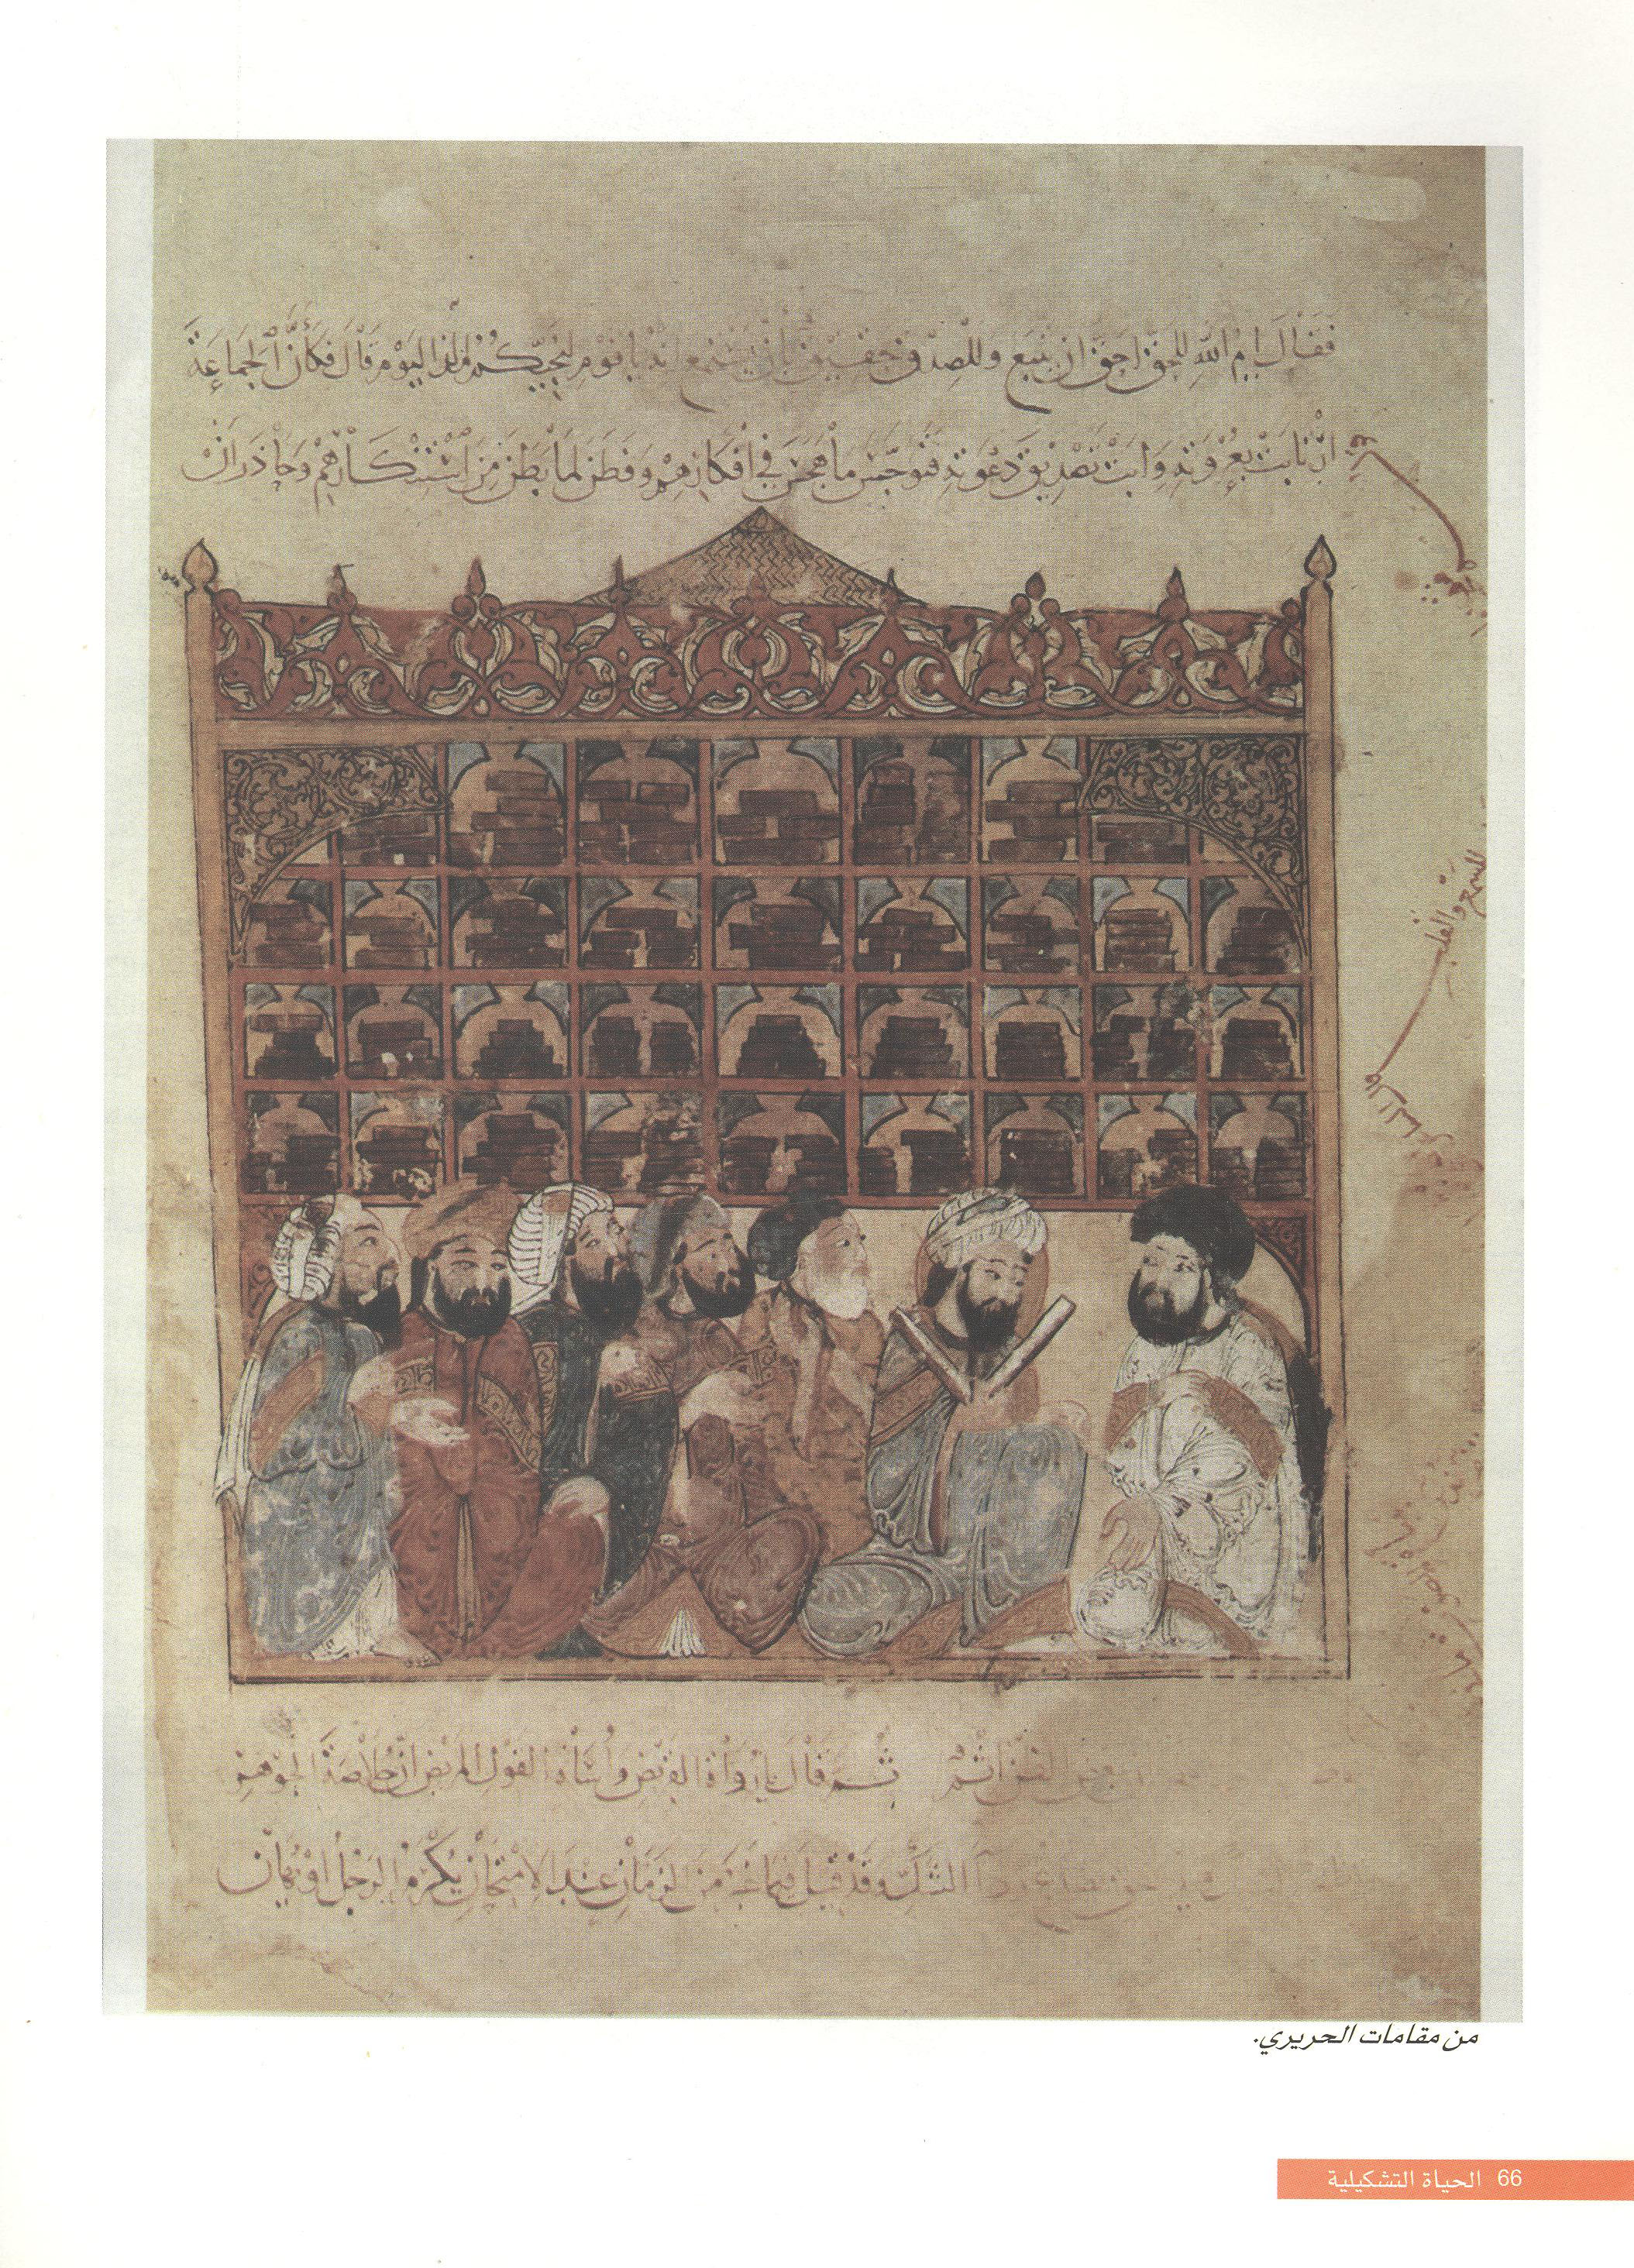 فَقَالَ ايمُ اللهِ لَلحَقُّ احَقُّ ان يتبع وللصِدْق حقيقٌ بان يستمع انه يا قوم لنجيّكم مذ اليوم قَالَ فكَأنَّ الجمَاعَةَ
ارتابَتْ بعزْوَتِهِ وَابَتْ تصْدِيقَ دعْوَتِهِ فتوجّسَ مَا هجسَ في افكارهم وفطن لما بطن من استنكارهم وحَاذرَ انْ
للسمع والقلب
بعض الظن اثمٌ ثُمّ قَالَ يا رُوَاةَ القريض وأُسَاة القول المريض انّ خُلاصَةَ الجوهر
الشكِّ وقد قيل فيما غبر من الزمان عند الامتحان يكرم الرجل او يهان
من مقامات الحريري.
66 الحياة التشكيلية